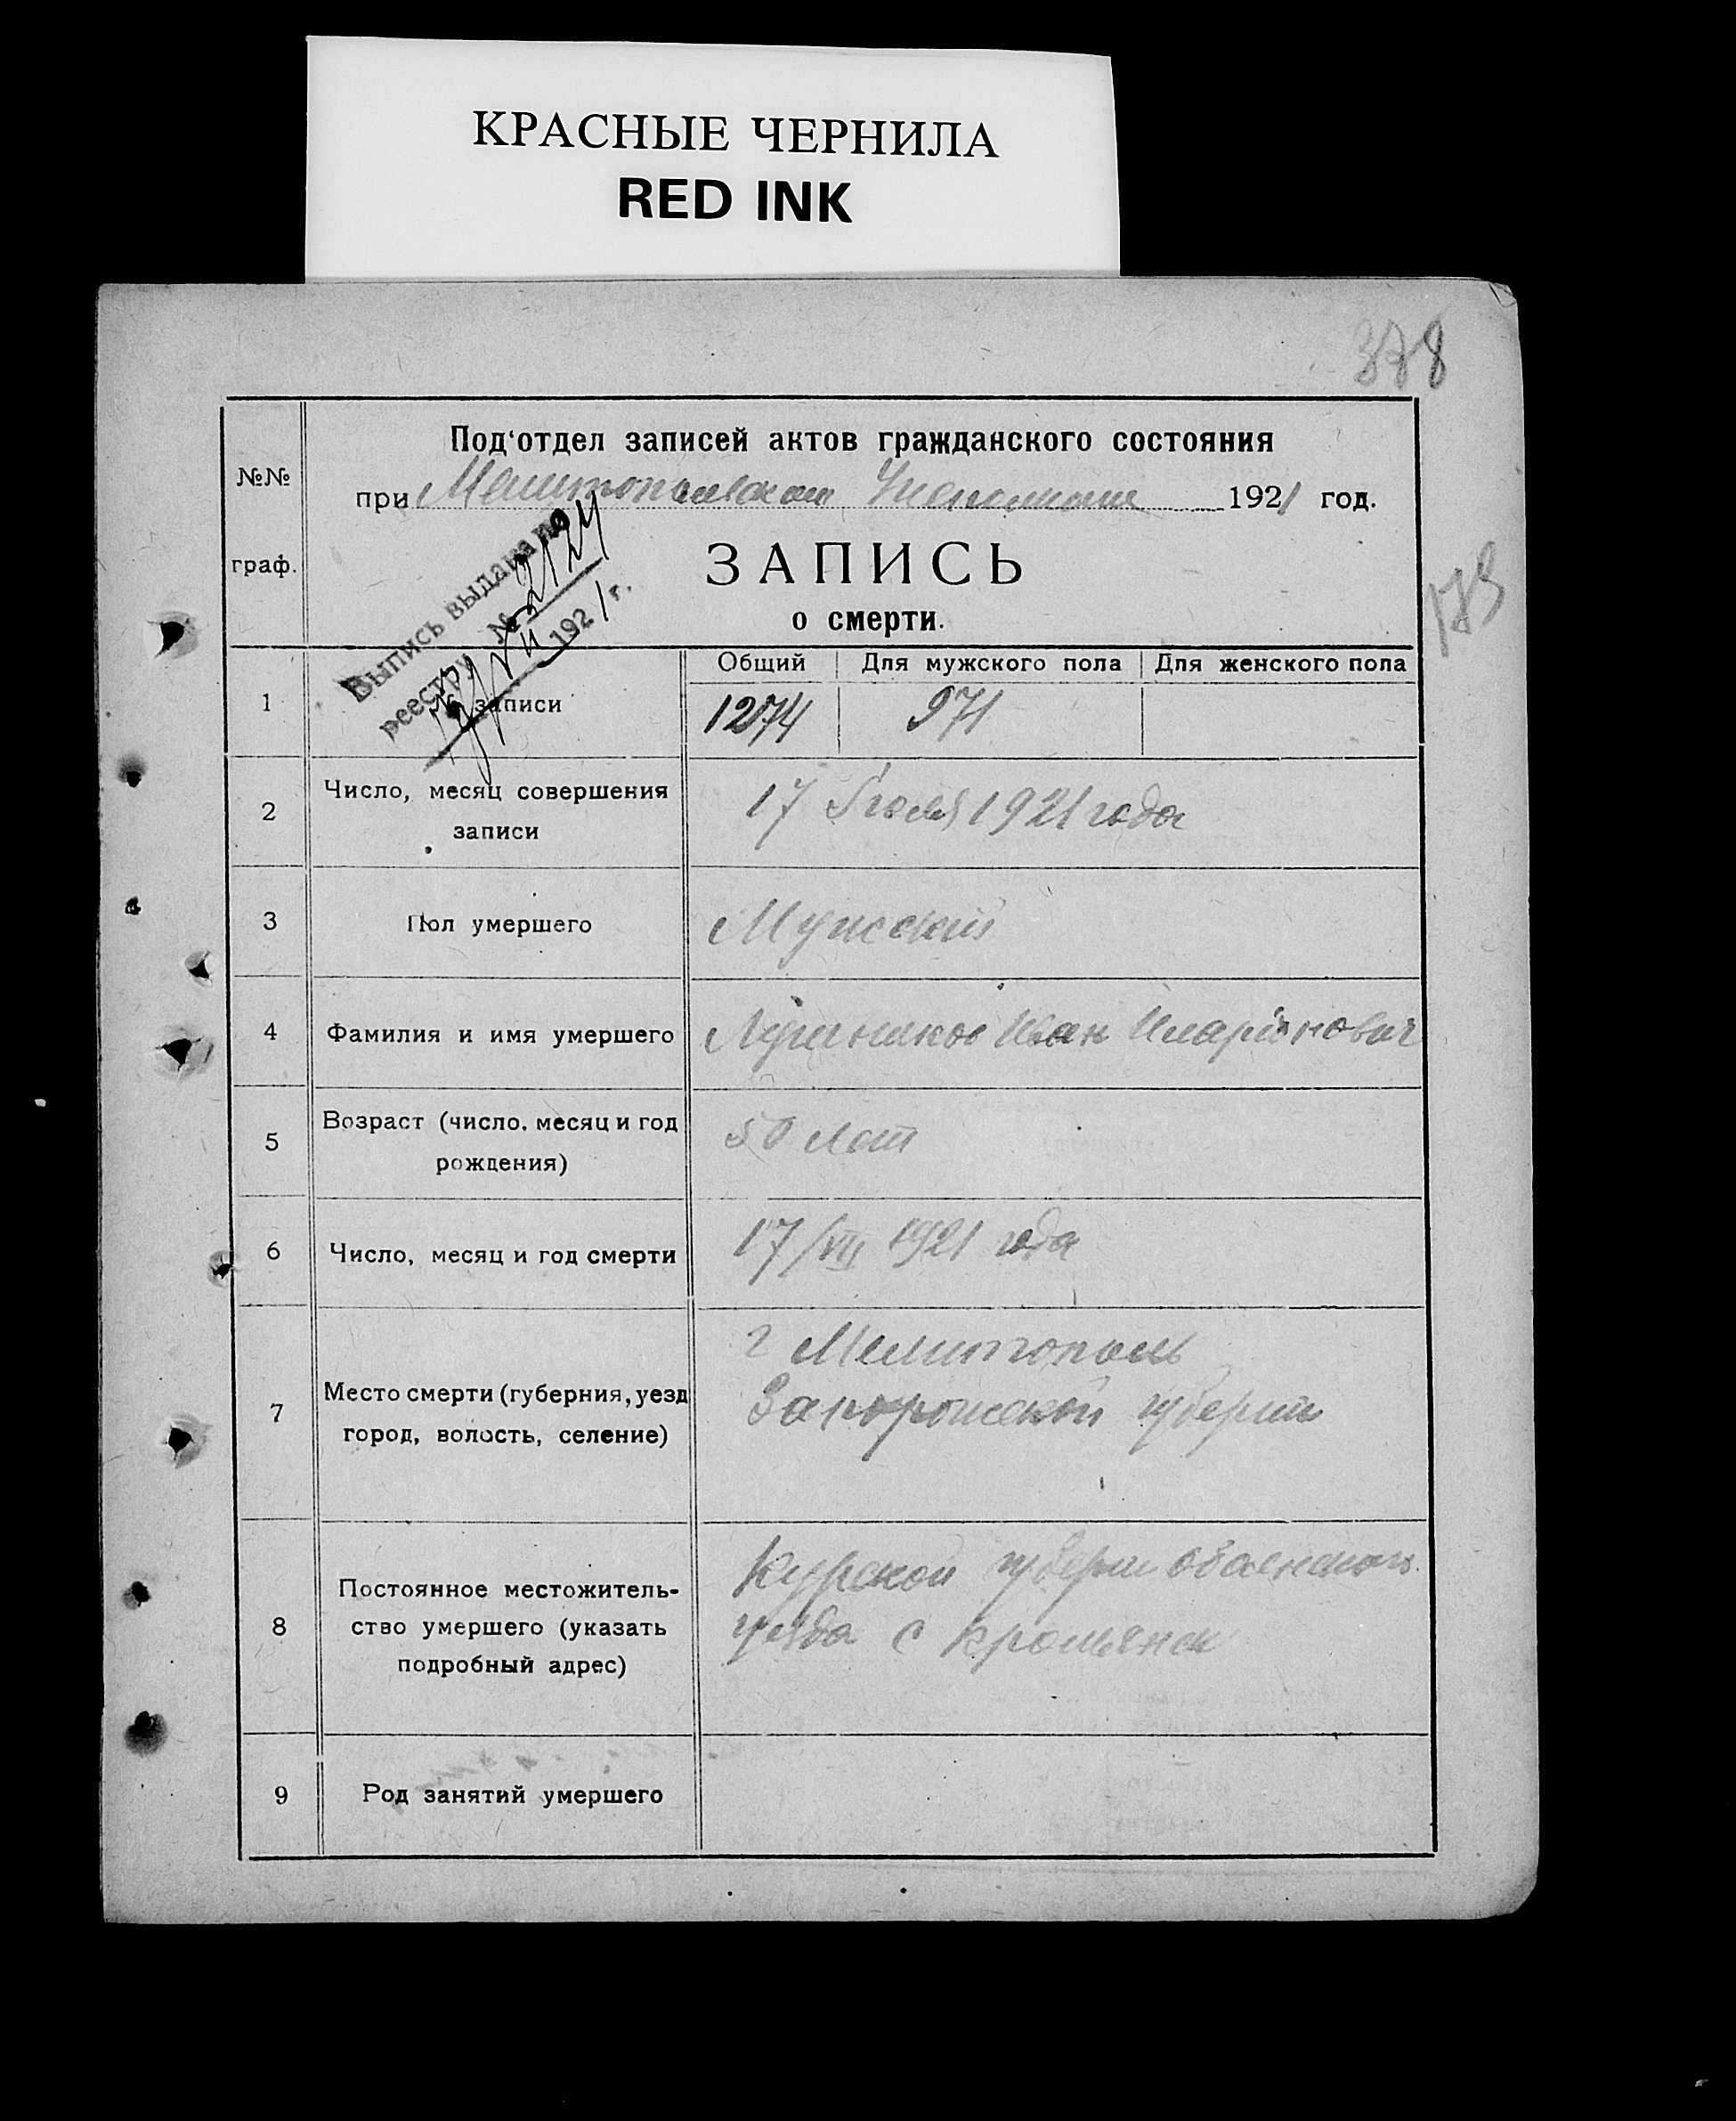 КРАСНЫЕ ЧЕРНИЛА
RED INK
378
Под‘отдел записей актов гражданского состояния
№№
при Мелитопольском 1921 год.
граф.
ЗАПИСЬ
о смерти.
173
Выпись выдана по
реестру № 2124
1921 г.
Общий Для мужского пола Для женского пола
1 № записи 1274 971
2 Число, месяц совершения
записи
17 Июля 1921 года
3 Пол умершего Мужской
4 Фамилия и имя умершего Иван Иларіонович
5 Возраст (число, месяц и год
рождения)
50 лет
6 Число, месяц и год смерти 17/VII 1921 года
7 Место смерти (губерния, уезд
город, волость, селение)
г Мелитополь
Запорожской губернии
8 Постоянное местожитель-
ство умершего (указать
подробный адрес)
Курской губерни
уезда с
9 Род занятий умершего